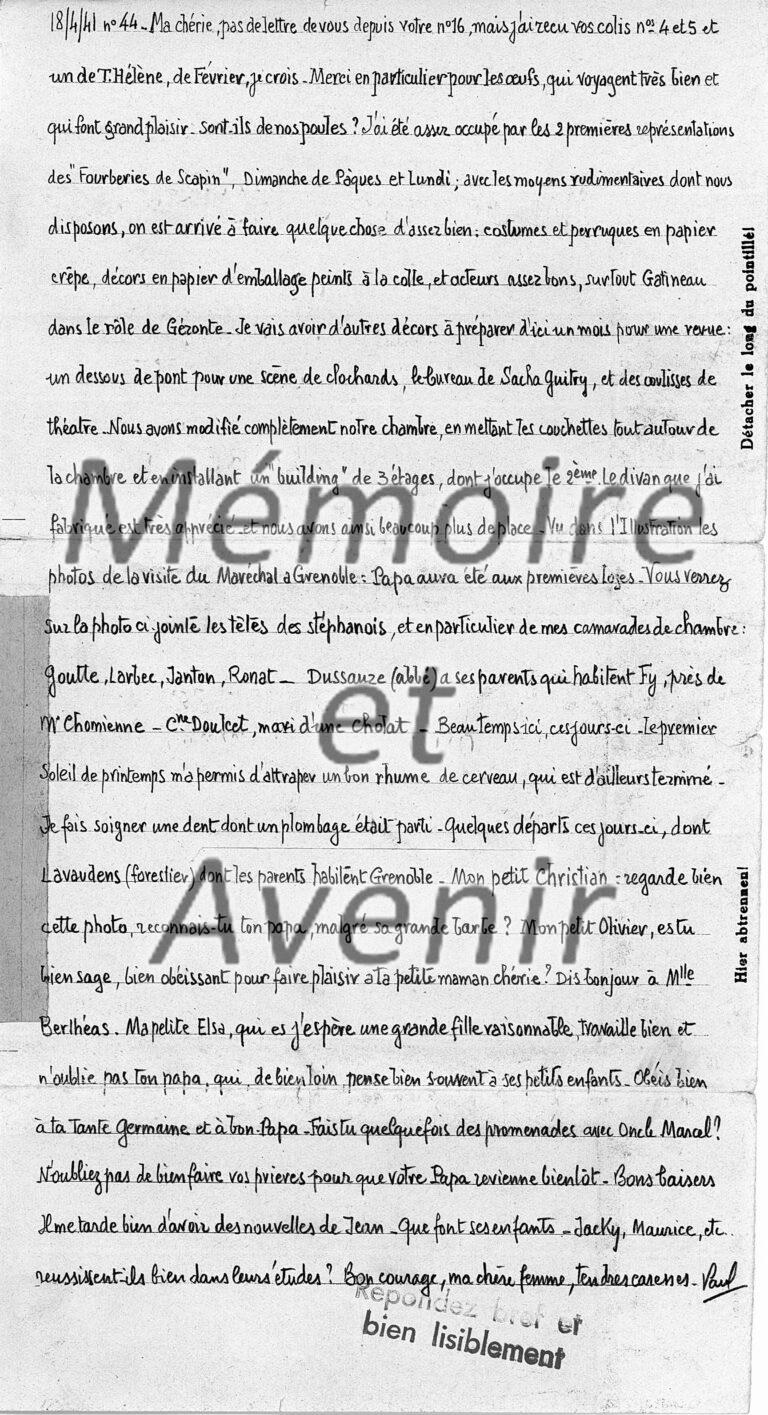 18/4/41 nº 44 - Ma chérie, pas de lettre de vous depuis votre nº16, mais j'ai recu vos colis nos 4 et 5 et
un de T. Hélène, de Février, je crois - Merci en particulier pour les œufs, qui voyagent très bien et
qui font grand plaisir - sont-ils de nos poules ? J'ai été assez occupé par les 2 premières représentations
des "Fourberies de Scapin", Dimanche de Pâques et Lundi ; avec les moyens rudimentaires dont nous
disposons, on est arrivé à faire quelque chose d'assez bien : costumes et perruques en papier
crêpe, décors en papier d'emballage peints à la colle, et acteurs assez bons, surtout Gatineau
dans le rôle de Géronte - Je vais avoir d'autres décors à préparer d'ici un mois pour une revue :
un dessous de pont pour une scène de clochards, le bureau de Sacha Guitry, et des coulisses de
théatre - Nous avons modifié complètement notre chambre, en mettant les couchettes tout autour de
la chambre et en installant un "building" de 3 étages, dont j'occupe le 2ème. Le divan que j'ai
fabriqué est très apprécié - et nous avons ainsi beaucoup plus de place - Vu dans l'Illustration les
photos de la visite du Maréchal a Grenoble : Papa aura été aux premières loges - Vous verrez
sur la photo ci jointe les têtes des stéphanois, et en particulier de mes camarades de chambre :
Goutte, Larbec, Janton, Ronat - Dussauze (abbé) a ses parents qui habitent Fy, près de
Mr Chomienne - Cne Doulcet, mari d'une Cholat - Beau temps ici, ces jours-ci - Le premier
soleil de printemps m'a permis d'attraper un bon rhume de cerveau, qui est d'ailleurs terminé -
Je fais soigner une dent dont un plombage était parti - Quelques départs ces jours-ci, dont
Lavaudens (forestier) dont les parents habitent Grenoble - Mon petit Christian : regarde bien
cette photo, reconnais-tu ton papa, malgré sa grande barbe ? Mon petit Olivier, es tu
bien sage, bien obéissant pour faire plaisir a ta petite maman chérie ? Dis bonjour à Mlle
Berlhéas. Ma petite Elsa, qui es j'espère une grande fille raisonnable, travaille bien et
n'oublie pas ton papa, qui, de bien loin, pense bien souvent à ses petits enfants - Obéis bien
à ta Tante Germaine et à bon Papa - Fais tu quelquefois des promenades avec Oncle Marcel ?
N'oubliez pas de bien faire vos prieres pour que votre Papa revienne bientôt - Bons baisers
Il me tarde bien d'avoir des nouvelles de Jean - Que font ses enfants - Jacky, Maurice, etc..
reussissent-ils bien dans leurs études ? Bon courage, ma chère femme, tendres caresses - Paul
Répondez bref et
bien lisiblement
Détacher le long du pointillé!
Hier abtrennen!
Mémoire
et
Avenir